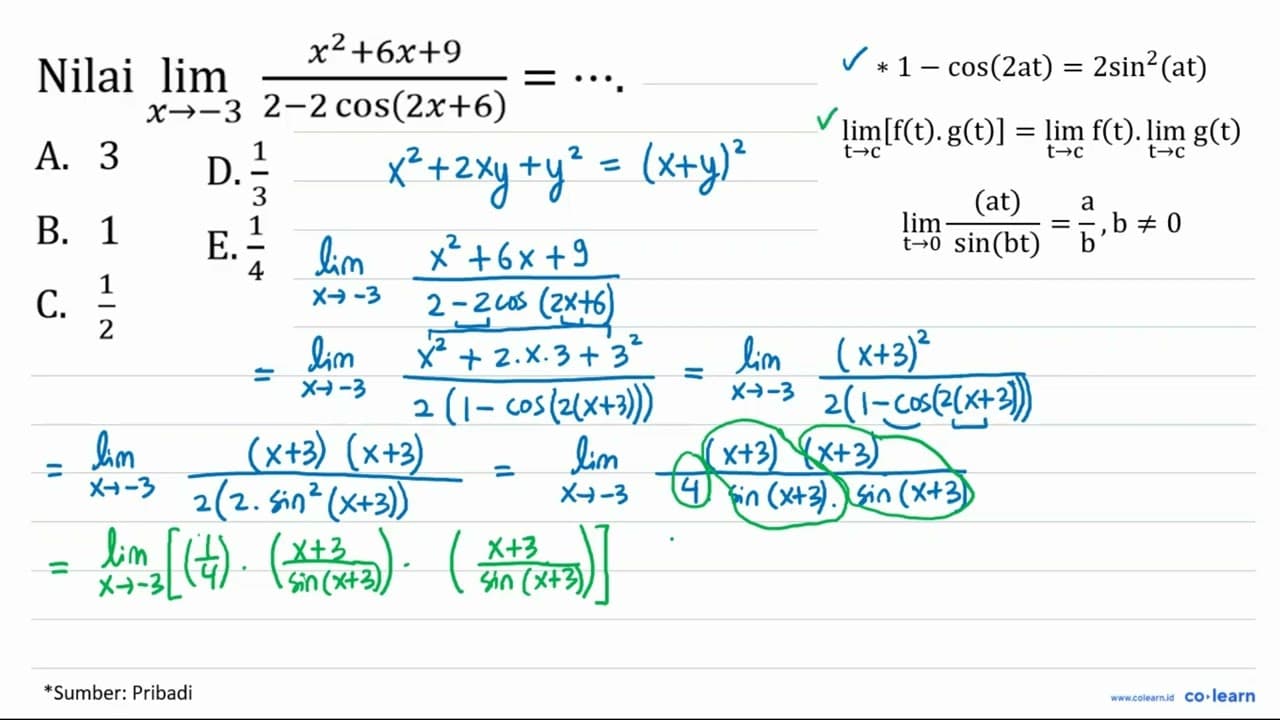 Nilai lim x→−3 x²+6x+9 / 2−2 cos(2x+6) = ⋯.
A. 3
B. 1
C. 1/2
D. 1/3
E. 1/4
✓ * 1 − cos(2at) = 2sin²(at)
✓ lim t→c [f(t). g(t)] = lim t→c f(t). lim t→c g(t)
lim t→0 (at) / sin(bt) = a/b , b ≠ 0
x² + 2xy + y² = (x+y)²
lim x→−3 x² + 6x + 9 / 2 − 2 cos (2x+6)
= lim x→−3 x² + 2.x.3 + 3² / 2 (1 − cos(2(x+3))) = lim x→−3 (x+3)² / 2(1−cos(2(x+3)))
= lim x→−3 (x+3) (x+3) / 2(2. sin² (x+3)) = lim x→−3 (x+3) (x+3) / 4 sin (x+3). sin (x+3)
= lim x→−3 [(1/4) . (x+3 / sin(x+3)) . (x+3 / sin (x+3))]
*Sumber: Pribadi
www.colearn.id co·learn